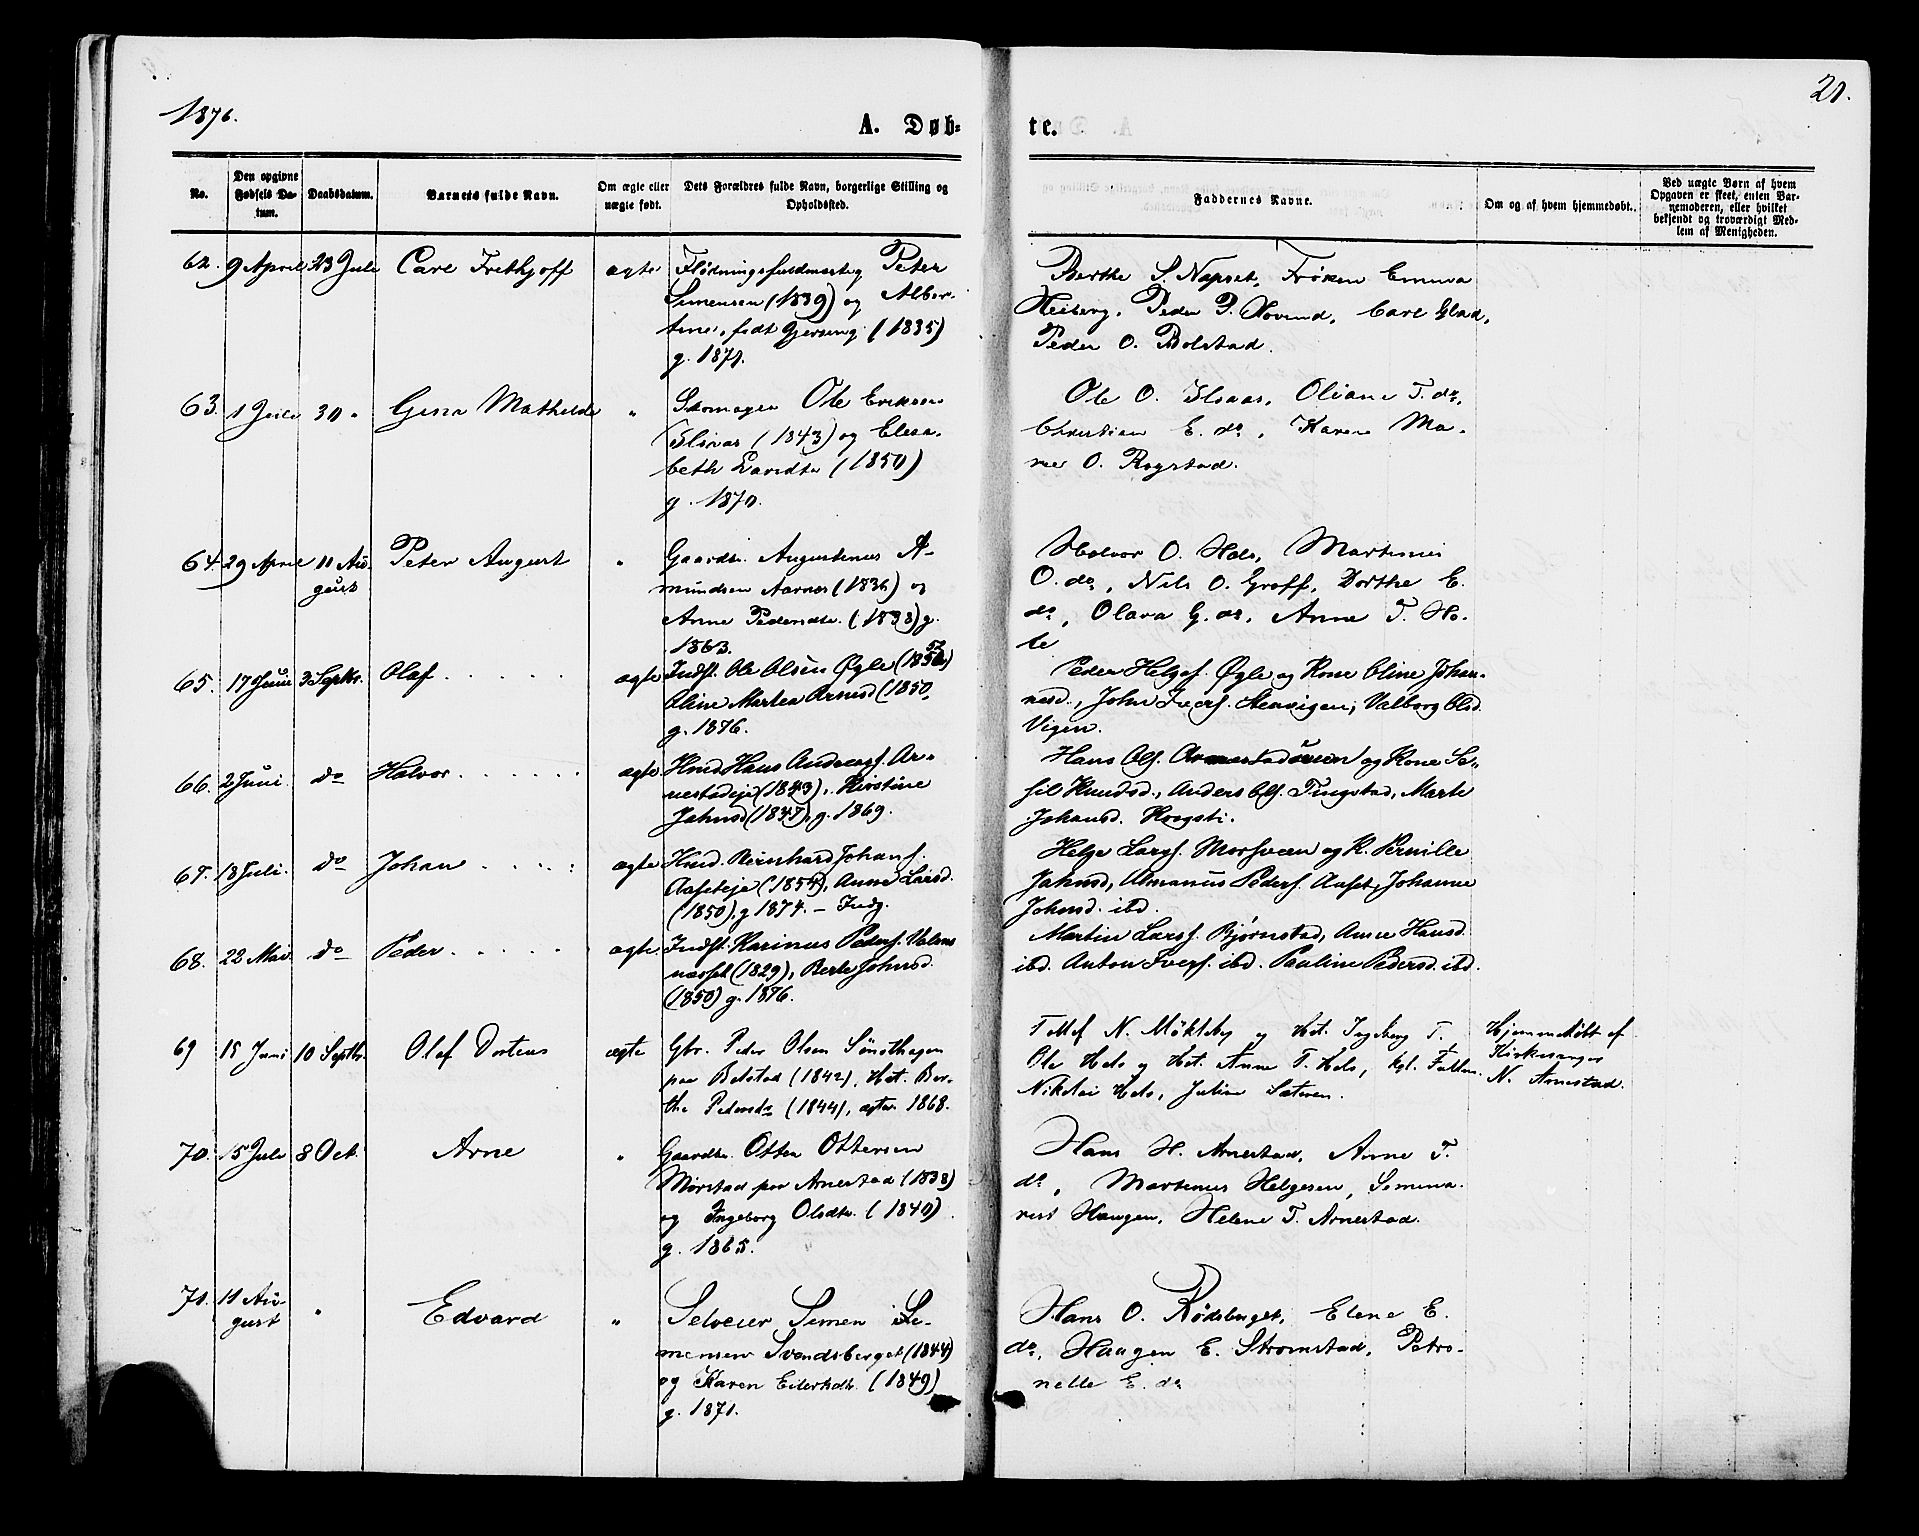 1876.
21.
A. Døb-
te.
No.
Den opgivne
Fødsels Da-
tum.
Daabsdatum.
Barnets fulde Navn.
Om ægte eller
uægte født.
Dets Forældres fulde Navn, borgerlige Stilling og
Opholdssted.
Faddernes Navne.
Om og af hvem hjemmedøbt.
Ved uægte Børn af hvem
Opgaven er skeet, enten Bar-
nemoderen, eller hvilket
bekjendt og troværdigt Med-
lem af Menigheden.
62. 9 April 23 Juli Carl Frethjoff ægte
Peter
Simensen (1839) og Alber-
tine, født Gjersing (1835)
g. 1871.
Berthe S. Napset, Frøken Emma
Heiberg, Peder P. Hovind, Carl Glad,
Peder O. Bolstad.
63. 1 Juli 30 " Gina Mathilde "
Skomager Ole Eriksen
(1843) og Elisa-
beth Larsdtr (1850)
g. 1870.
Ole O. Oliane T. do,
Christian E. do, Karen Ma-
rie O. Rogstad.
64. 29 April 11 Au-
gust
Peter August "
Gaardbr. Augustinus A-
mundsen Aarnes (1836) og
Anne Pedersdtr. (1838) g.
1863.
Halvor O. Hols, Martinus
O. do, Nils O. Groff, Dorthe E.
do, Olava G. do, Anne T. Ho-
le
65. 17 Juni 3 Septbr. Olaf . . . . . . ægte
Indst. Ole Olsen Øgle (1852)
Eline Martea Arnesd (1850,
g. 1876.
Peder Helges. Øgle og Kone Eline Johan-
nesd., John Ivers. Stenvigen, Valborg Olsd.
Vigen.
66. 2 Juni. do Halvor. . . . . . ægte.
Hmd Hans Anders. Ar-
nestadeje (1843), Kirstine
Johnsd (1847), g. 1869.
Hans Ols. Arnestadsveen og Kone Se-
sil Knudsd., Anders Ols. Tingstad, Marte
Johansd. Haagsti.
67. 18 Juli. do Johan . . . . : ægte
Hmd. Reinhard Johans.
Aaseteje (1854), Anne Larsd.
(1850), g 1874. – Indg.
Helge Larss. Morsveen og K. Pernille
Johnsd, Amanus Peders. Aaset, Johanne
Johnsd. ibd.
68. 22 Mai. do Peder . . . . . ægte.
Indst. Karinus Peders.
næsset (1829), Berte Johnsd.
(1850) g. 1876.
Martin Larss. Bjørnstad, Anne Hansd.
ibd. Anton Ivers. ibd. Pauline Pedersd. ibd.
69 15 Juni 10 Septbr. Olaf Dorteus ægte
Gbr. Peder Olsen Sønsthagen
paa Bolstad (1842), Hst. Ber-
the Pedersdr (1844), ægtev. 1868.
Tollef N. Møkleby og Hst. Ingeborg T.
Ole Hols og Hst. Anne T. Hols,
Nikolai Hols, Juline Sæteren.
Hjemmedøbt af
Kirkesanger
N. Arnestad.
70. 15 Juli 8 Oct. Arne "
Gaardbr. Otter Ottersen
Mørstad paa Arnestad (1838)
og Ingeborg Olsdtr. (1840).
g. 1865.
Hans H. Arnestad, Anne T.
do, Martinus Helgesen, Semina-
rist Haugen, Helene T. Arnestad.
71. 11 Au-
gust
" Edvard "
Selveier Simen Si-
mensen Svendsberget (1844)
og Karen Eilertsdtr. (1849)
g. 1871.
Hans O. Rødsberget, Elene E.
do, Haagen E. Strømstad, Petro-
nelle E. do